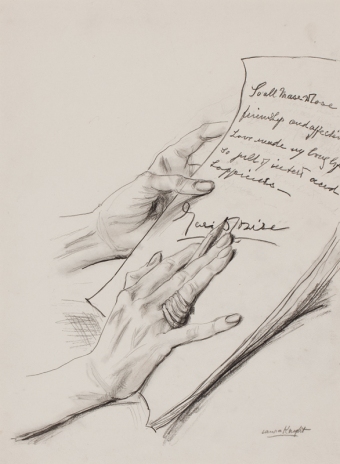 To all those whose
friendship and affection
Love made my long life
so full of interest and
happiness —
Laura Knight